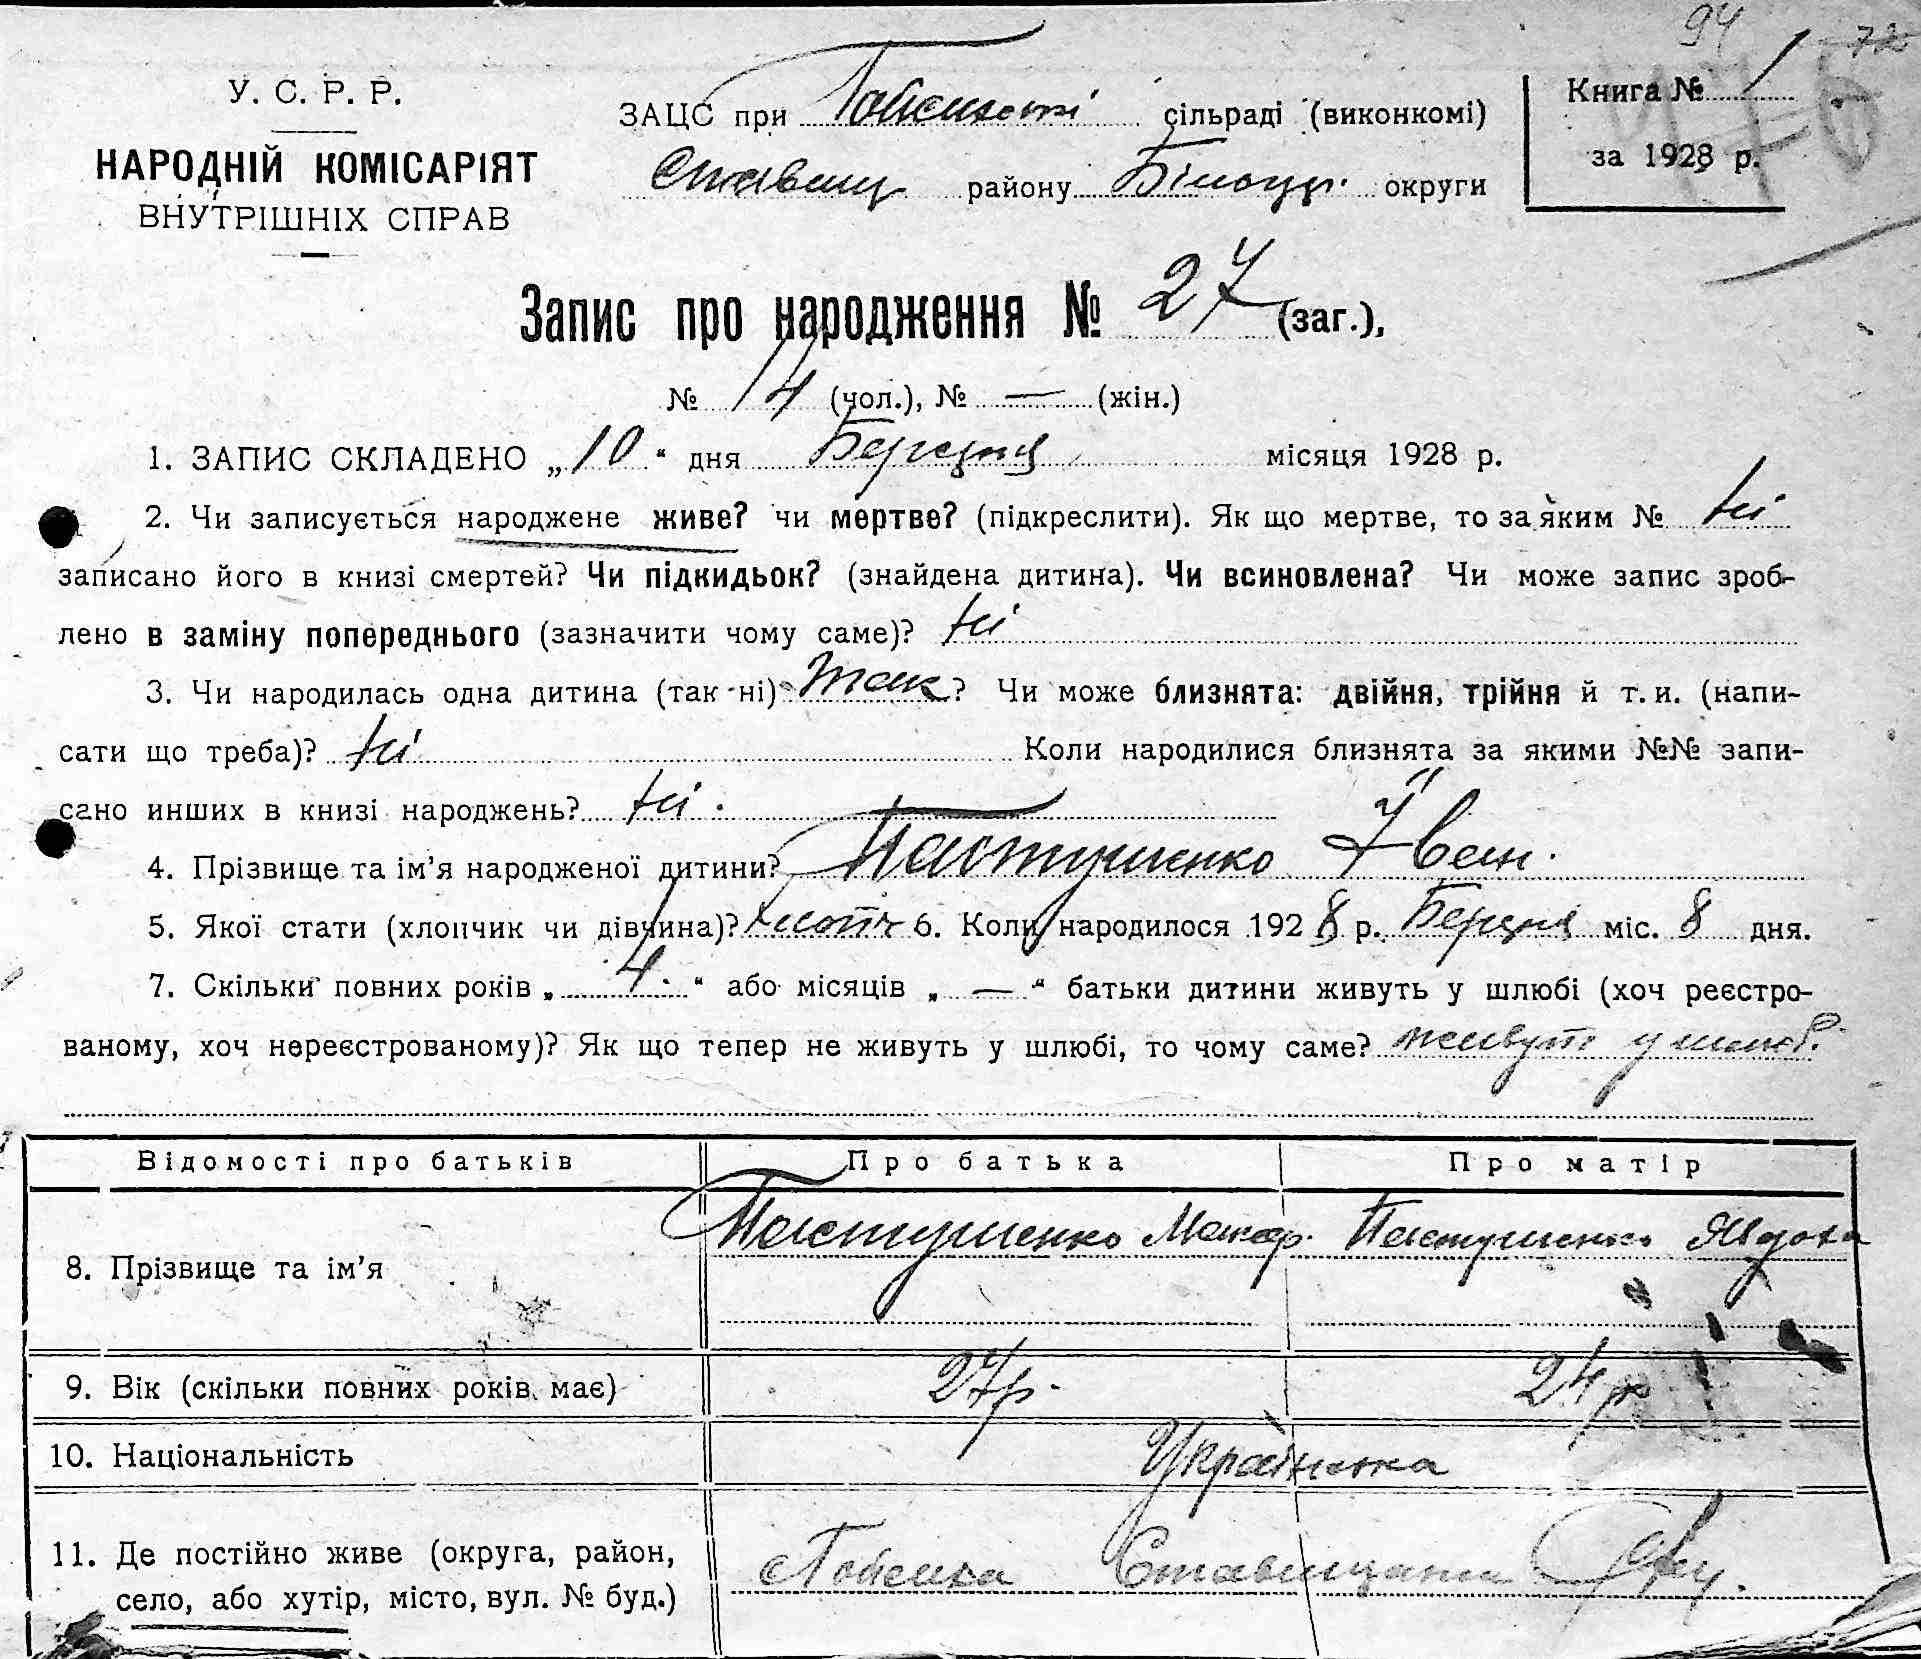 94 72
У. С. Р. Р.
НАРОДНІЙ КОМІСАРІЯТ
ВНУТРІШНІХ СПРАВ
ЗАЦС при сільраді (виконкомі)
Ставищ району Білоцр. округи
Книга № 1
за 1928 р.
Запис про народження № 27 (заг.),
№ 14 (чол.), № — (жін.)
1. ЗАПИС СКЛАДЕНО „10“ дня Березня місяця 1928 р.
2. Чи записується народжене живе? чи мертве? (підкреслити). Як що мертве, то за яким № ні
записано його в книзі смертей? Чи підкидьок? (знайдена дитина). Чи всиновлена? Чи може запис зроб-
лено в заміну попереднього (зазначити чому саме)? ні
3. Чи народилась одна дитина (так - ні) Так? Чи може близнята: двійня, трійня й т. и. (напи-
сати що треба)? ні Коли народилися близнята за якими №№ запи-
сано инших в книзі народжень? ні.
4. Прізвище та ім’я народженої дитини? Пастушенко Іван.
5. Якої стати (хлопчик чи дівчина)? хлопч 6. Коли народилося 1928 р. Березня міс. 8 дня.
7. Скільки повних років „ 4. “ або місяців „ — “ батьки дитини живуть у шлюбі (хоч реєстро-
ваному, хоч нереєстрованому)? Як що тепер не живуть у шлюбі, то чому саме? живуть у шлюб.
Відомості про батьків Про батька Про матір
8. Прізвище та ім’я Пастушенко Макар. Пастушенко Явдоха
9. Вік (скільки повних років має) 27 р. 24 р
10. Національність Українська
11. Де постійно живе (округа, район,
село, або хутір, місто, вул. № буд.)